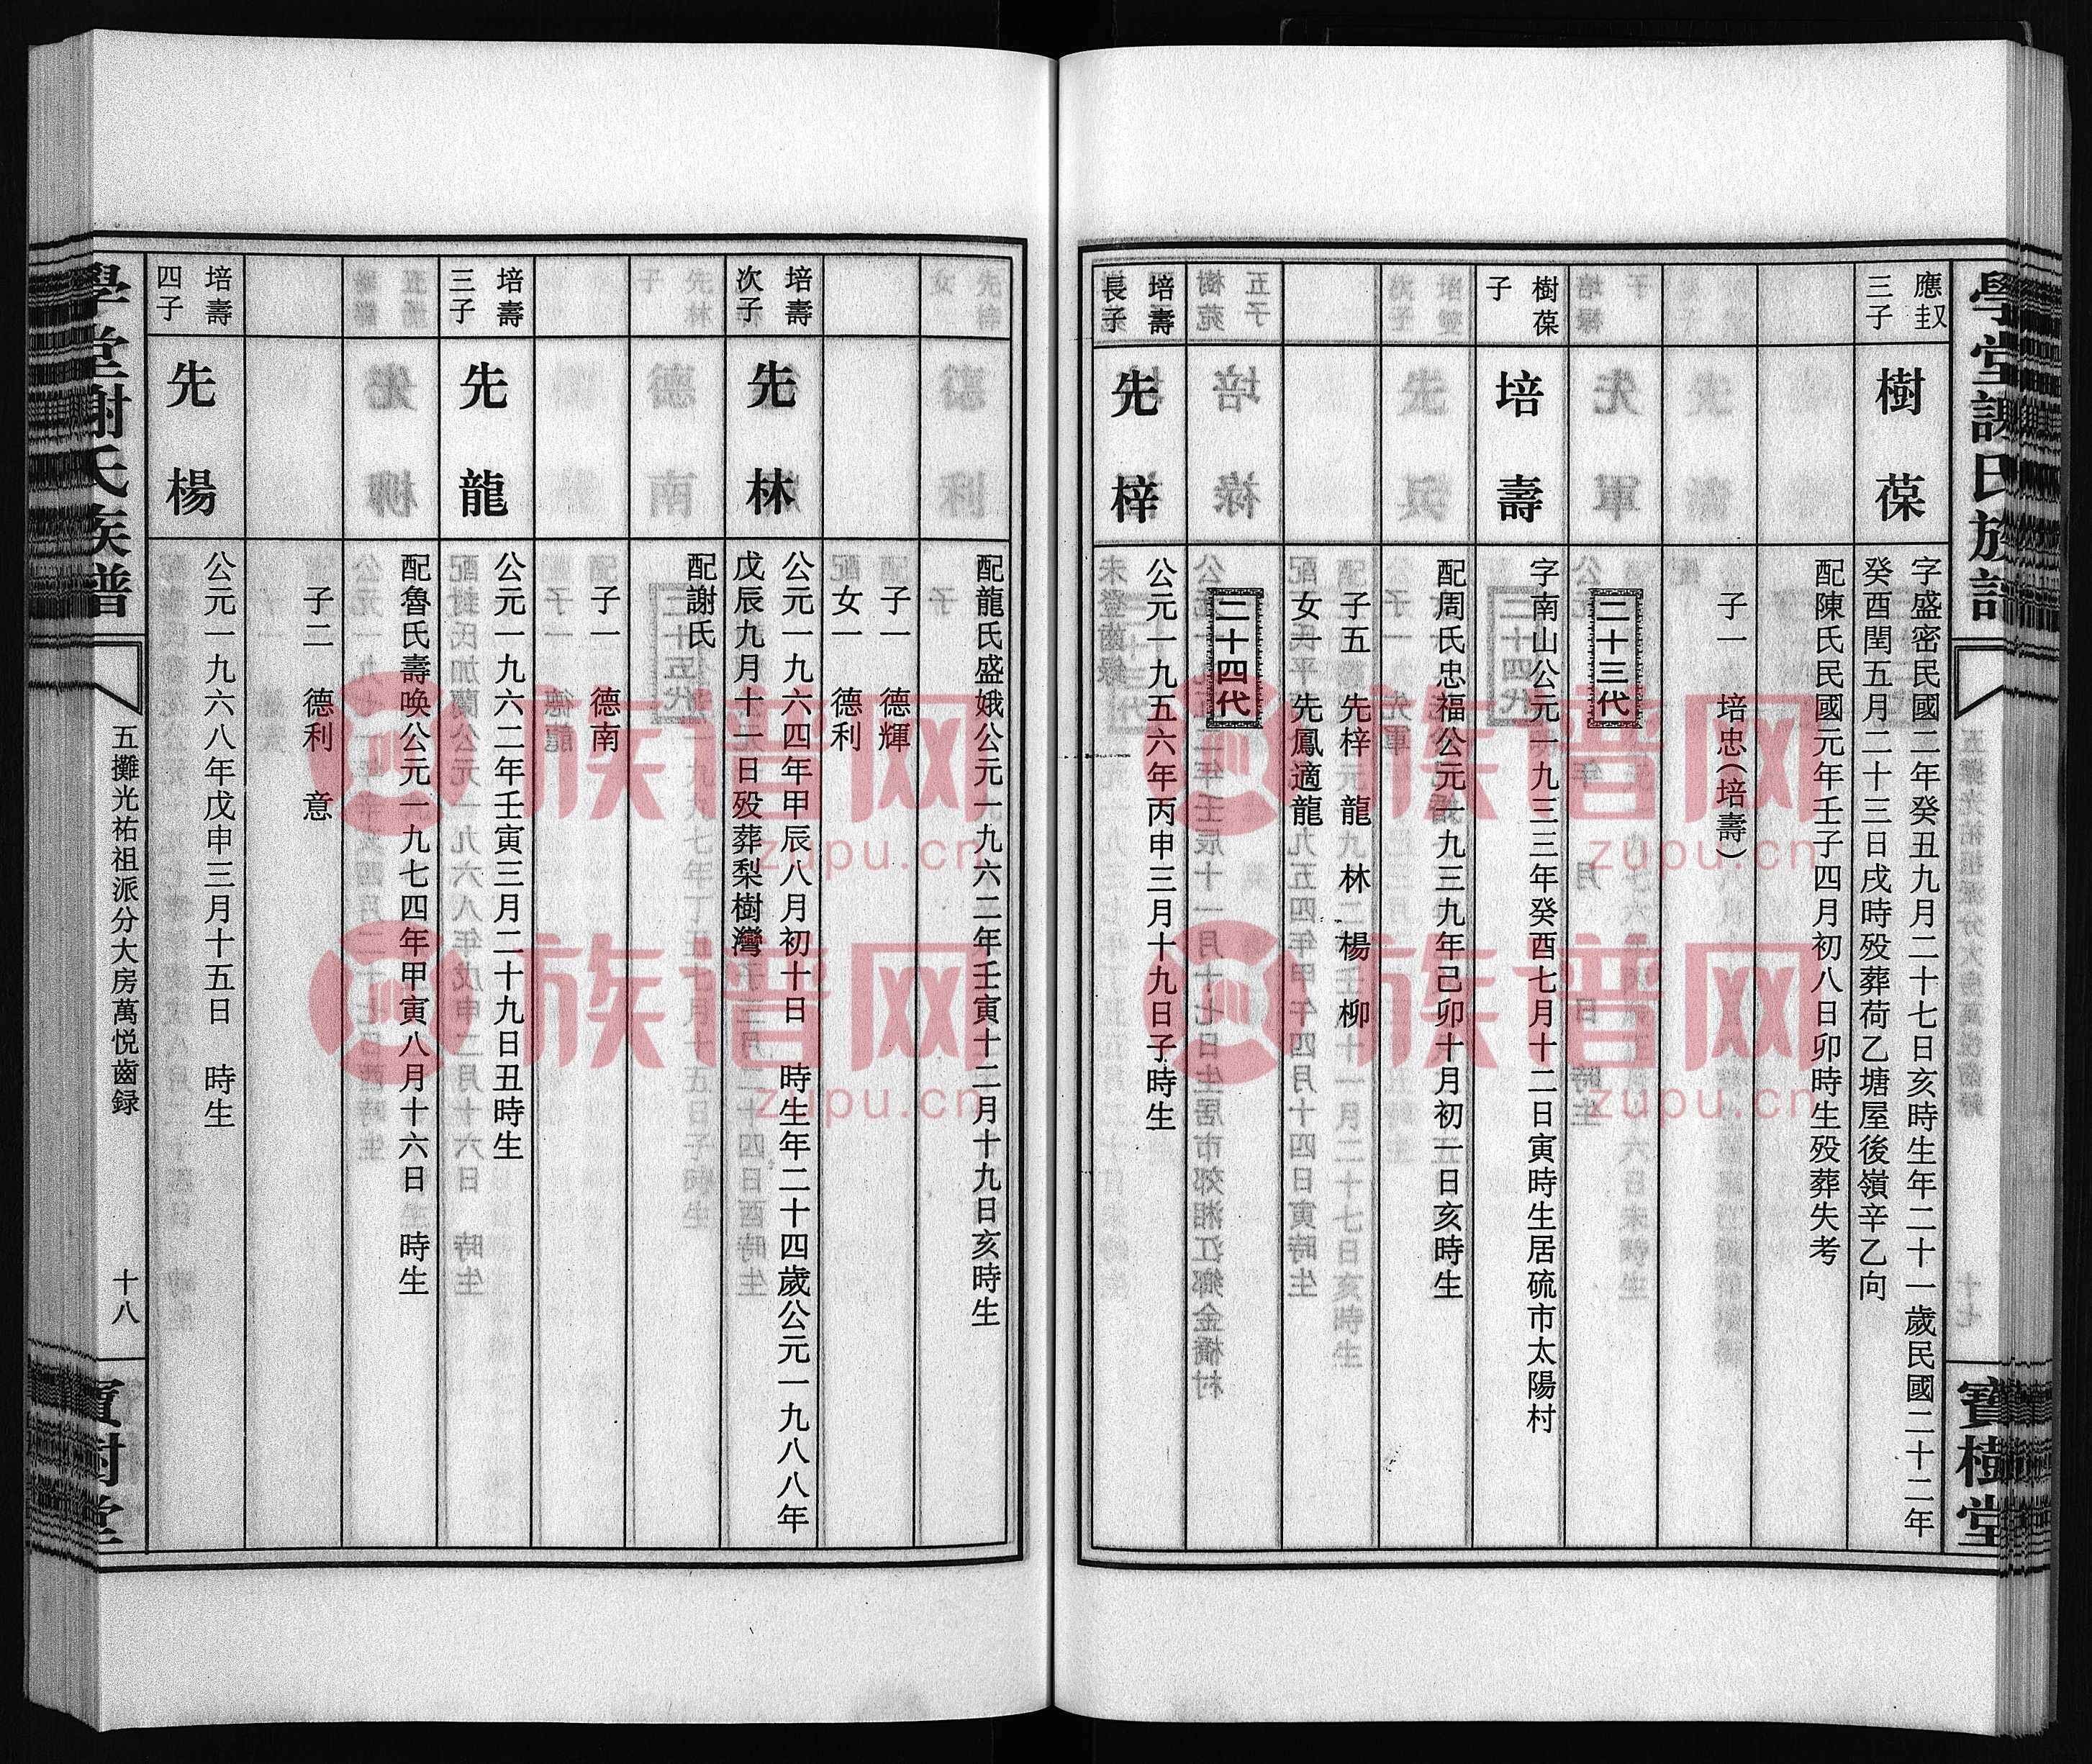 學堂謝氏族譜
寶樹堂
應釵
三子
樹葆
字盛密民國二年癸丑九月二十七日亥時生年二十一歲民國二十二年
癸酉閏五月二十三日戌時歿葬荷乙塘屋後嶺辛乙向
配陳氏民國元年壬子四月初八日卯時生歿葬失考
子一 培忠(培壽)
二十三代
樹葆
子
培壽
字南山公元一九三三年癸酉七月十二日寅時生居硫市太陽村
配周氏忠福公元一九三九年己卯十月初一日亥時生
子五 先梓 龍 林 楊 柳
女一 先鳳適龍
二十四代
培壽
長子
先梓
公元一九五六年丙申三月十九日子時生
配龍氏盛娥公元一九六二年壬寅十二月十九日亥時生
子一 德輝
女一 德利
培壽
次子
先林
公元一九六四年甲辰八月初十日 時生年二十四歲公元一九八八年
戊辰九月十一日歿葬梨樹灣
配謝氏
子一 德南
培壽
三子
先龍
公元一九六二年壬寅三月二十九日丑時生
配魯氏壽喚公元一九七四年甲寅八月十六日 時生
子二 德利 意
培壽
四子
先楊
公元一九六八年戊申三月十五日 時生
學堂謝氏族譜
五攤光祐祖派分大房萬悦齒録
十八
寶樹堂
族谱网
zupu.cn
族谱网
zupu.cn
族谱网
zupu.cn
族谱网
zupu.cn